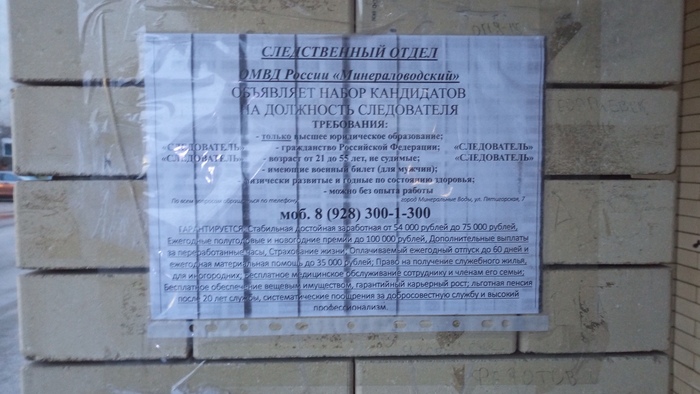 СЛЕДСТВЕННЫЙ ОТДЕЛ
ОМВД России «Минераловодский»
ОБЪЯВЛЯЕТ НАБОР КАНДИДАТОВ
НА ДОЛЖНОСТЬ СЛЕДОВАТЕЛЯ
ТРЕБОВАНИЯ:
- только высшее юридическое образование;
«СЛЕДОВАТЕЛЬ» - гражданство Российской Федерации; «СЛЕДОВАТЕЛЬ»
«СЛЕДОВАТЕЛЬ» - возраст от 21 до 55 лет, не судимые; «СЛЕДОВАТЕЛЬ»
- имеющие военный билет (для мужчин);
физически развитые и годные по состоянию здоровья;
- можно без опыта работы
По всем вопросам обращаться по телефону, город Минеральные Воды, ул. Пятигорская, 7
моб. 8 (928) 300-1-300
ГАРАНТИРУЕТСЯ: Стабильная достойная заработная от 54 000 рублей до 75 000 рублей,
Ежегодные полугодовые и новогодние премии до 100 000 рублей, Дополнительные выплаты
за переработанные часы, Страхование жизни. Оплачиваемый ежегодный отпуск до 60 дней и
ежегодная материальная помощь до 35 000 рублей; Право на получение служебного жилья,
для иногородних; Бесплатное медицинское обслуживание сотруднику и членам его семьи;
Бесплатное обеспечение вещевым имуществом, гарантийный карьерный рост; льготная пенсия
после 20 лет службы, систематические поощрения за добросовестную службу и высокий
профессионализм.